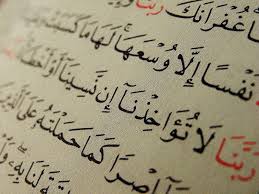 غُفْرَانَكَ رَبَّنَا
نَفْسًا إِلَّا وُسْعَهَا لَهَا مَا كَسَبَتْ
رَبَّنَا لَا تُؤَاخِذْنَا إِن نَّسِينَا أَوْ أَخْطَأْنَا
إِصْرًا كَمَا حَمَلْتَهُ عَلَى الَّذِينَ
لَنَا بِهِ